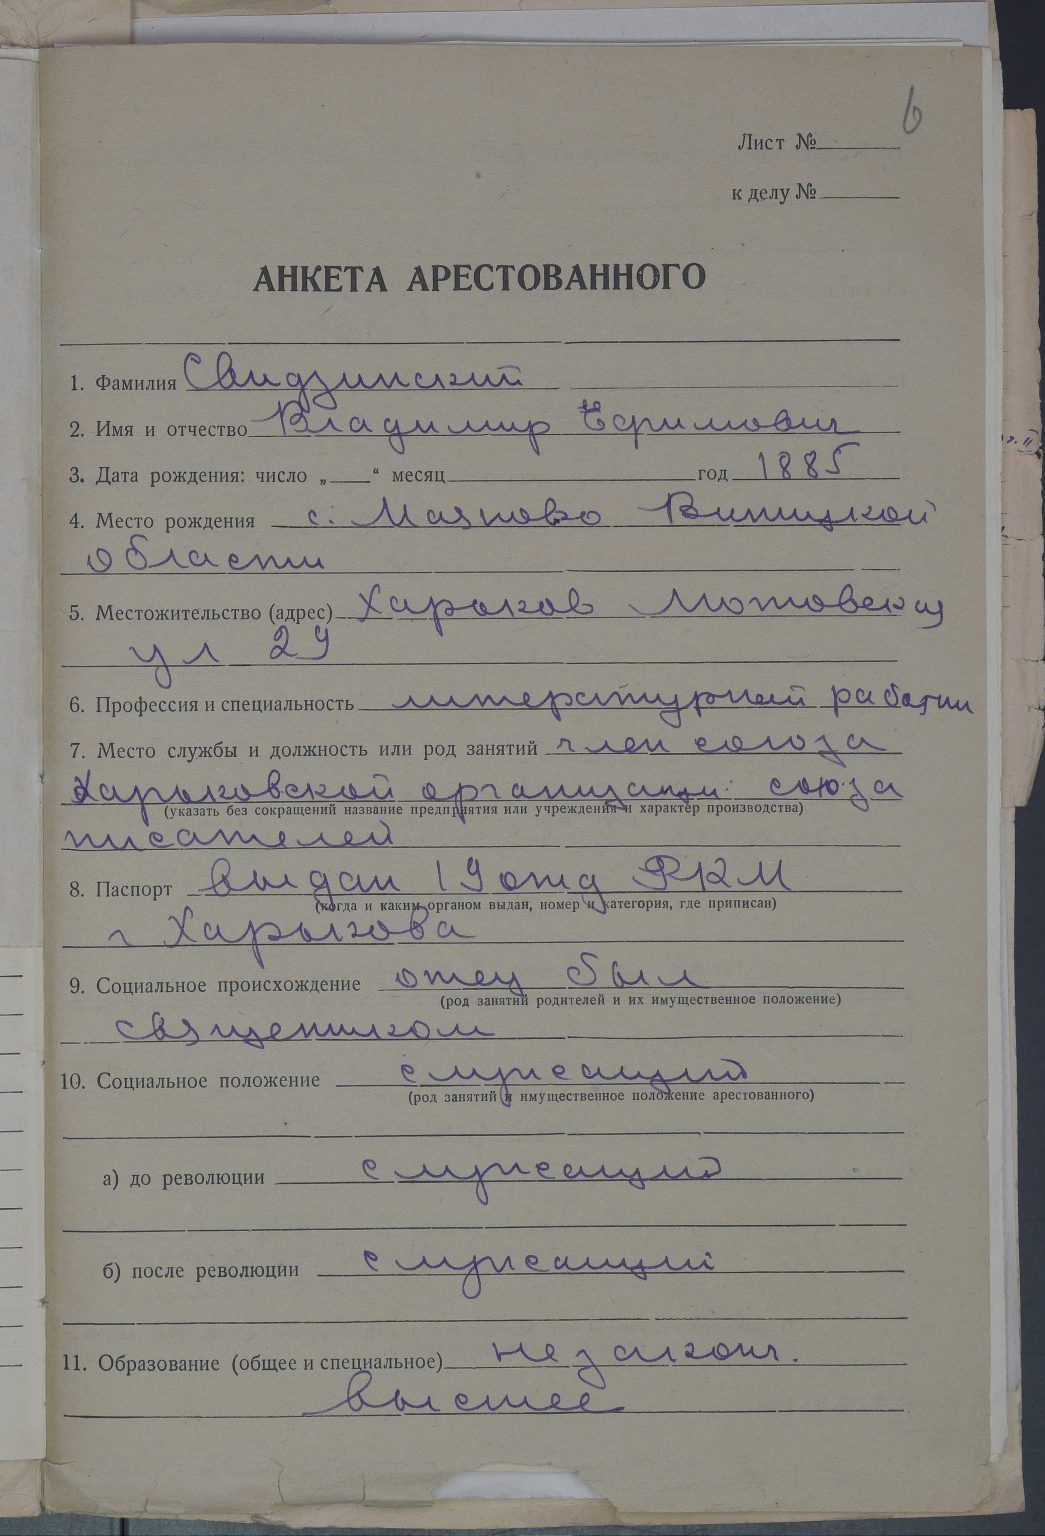 6
Лист №
к делу №
АНКЕТА АРЕСТОВАННОГО
1. Фамилия Свидзинский
2. Имя и отчество Владимир Ефимович
3. Дата рождения: число „ “ месяц год 1885
4. Место рождения с. Маяново Виницкой
области
5. Местожительство (адрес) Харьков
ул 29
6. Профессия и специальность литературный работни
7. Место службы и должность или род занятий член союза
Харьковской организации союза
(указать без сокращений название предприятия или учреждения и характер производства)
писателей
8. Паспорт выдан 19 отд РКМ
(когда и каким органом выдан, номер и категория, где приписан)
г Харькова
9. Социальное происхождение отец был
(род занятий родителей и их имущественное положение)
священником
10. Социальное положение служащий
(род занятий и имущественное положение арестованного)
а) до революции служащий
б) после революции служащий
11. Образование (общее и специальное) незаконч.
высшее